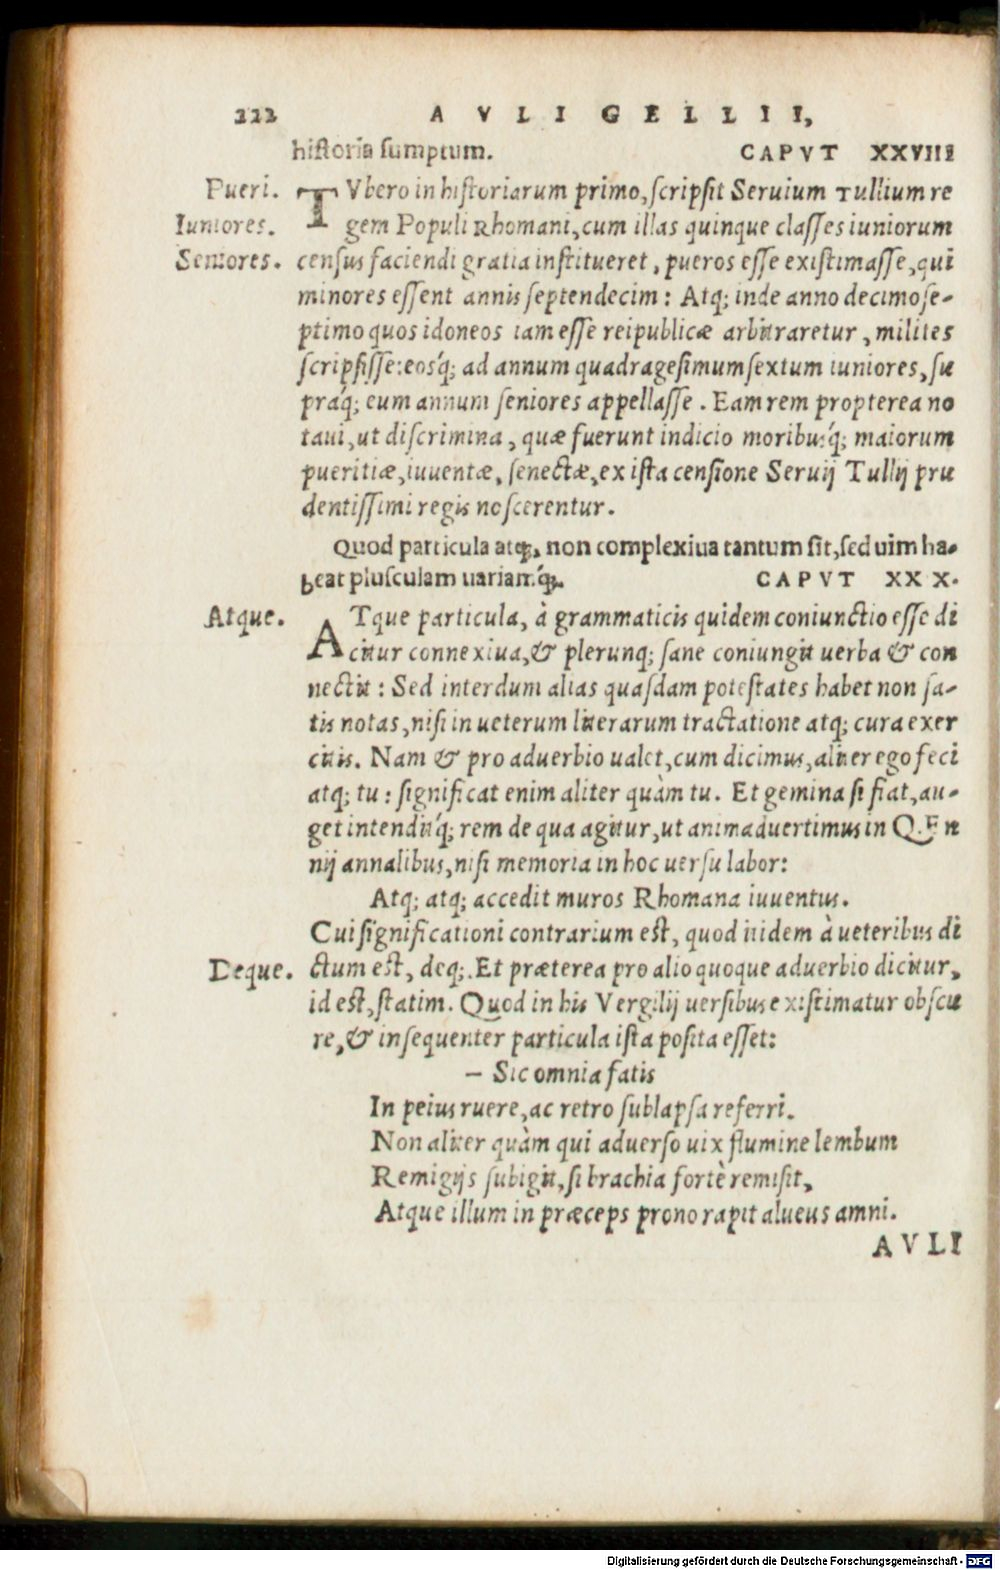 222 AVLI GELLII,
historia sumptum. CAPVT XXVIII
Pueri. TVbero in historiarum primo, scripsit Seruium Tullium re
Iuniores. gem Populi Rhomani, cum illas quinque classes iuniorum
Seniores. census faciendi gratia institueret, pueros esse existimasse, qui
minores essent annis septendecim: Atq; inde anno decimose-
ptimo quos idoneos iam esse reipublicæ arbitraretur, milites
scripsisse: eosq́; ad annum quadragesimumsextum iuniores, su
praq́; eum annum seniores appellasse. Eam rem propterea no
taui, ut discrimina, quæ fuerunt indicio moribusq́; maiorum
pueritiæ, iuuentæ, senectæ, ex ista censione Seruij Tullij pru
dentissimi regis noscerentur.
Quod particula atq;, non complexiua tantum sit, sed uim ha-
beat plusculam uariamq́;. CAPVT XXX.
Atque. ATque particula, à grammaticis quidem coniunctio esse di
citur connexiua, & plerunq; sane coniungit uerba & con
nectit: Sed interdum alias quasdam potestates habet non sa-
tis notas, nisi in ueterum literarum tractatione atq; cura exer
citis. Nam & pro aduerbio ualet, cum dicimus, aliter ego feci
atq; tu: significat enim aliter quàm tu. Et gemina si fiat, au-
get intenditq́; rem de qua agitur, ut animaduertimus in Q. En
nij annalibus, nisi memoria in hoc uersu labor:
Atq; atq; accedit muros Rhomana iuuentus.
Cui significationi contrarium est, quod itidem à ueteribus di
Deque. ctum est, deq;. Et præterea pro alio quoque aduerbio dicitur,
id est, statim. Quod in his Vergilij uersibus existimatur obscu
re, & insequenter particula ista posita esset:
— Sic omnia fatis
In peius ruere, ac retro sublapsa referri.
Non aliter quàm qui aduerso uix flumine lembum
Remigijs subigit, si brachia fortè remisit,
Atque illum in præceps prono rapit alueus amni.
AVLI
Digitalisierung gefördert durch die Deutsche Forschungsgemeinschaft - DFG